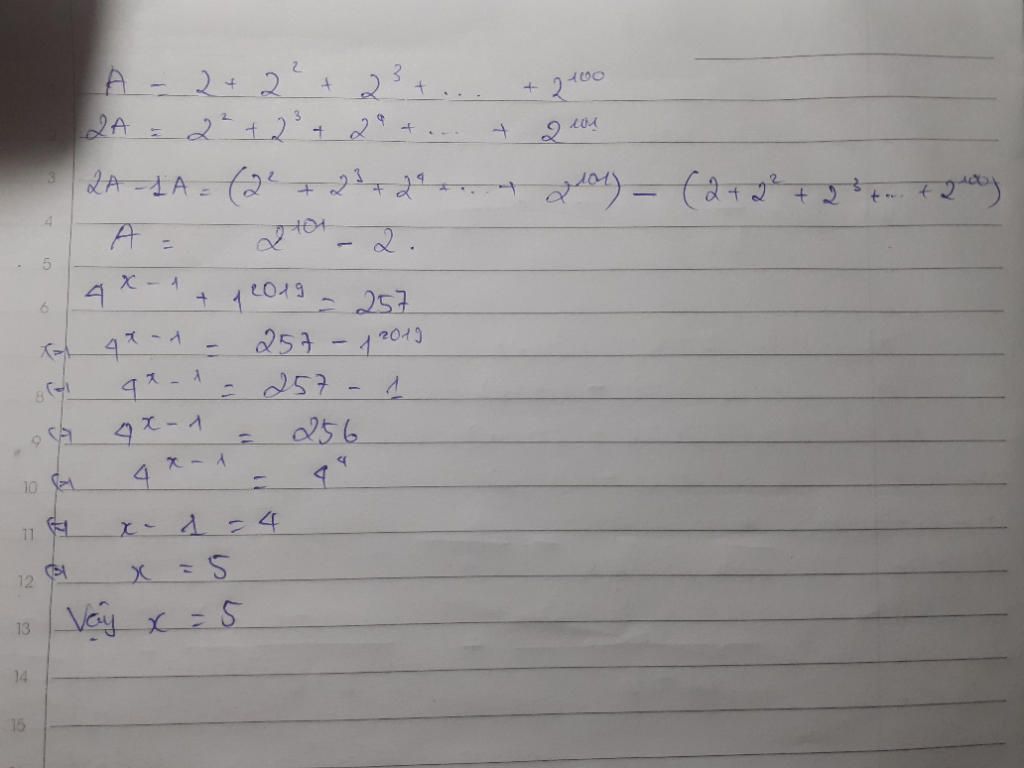 A = 2 + 2² + 2³ + ... + 2¹⁰⁰
2A = 2² + 2³ + 2⁴ + ... + 2¹⁰¹
3 2A - 1A = (2² + 2³ + 2⁴ + ... + 2¹⁰¹) - (2 + 2² + 2³ + ... + 2¹⁰⁰)
4 A = 2¹⁰¹ - 2.
5
6 4ˣ⁻¹ + 1²⁰¹⁹ = 257
4ˣ⁻¹ = 257 - 1²⁰¹⁹
8 ⇔ 4ˣ⁻¹ = 257 - 1
9 ⇔ 4ˣ⁻¹ = 256
10 ⇔ 4ˣ⁻¹ = 4⁴
11 ⇔ x - 1 = 4
12 ⇔ x = 5
13 Vậy x = 5
14
15